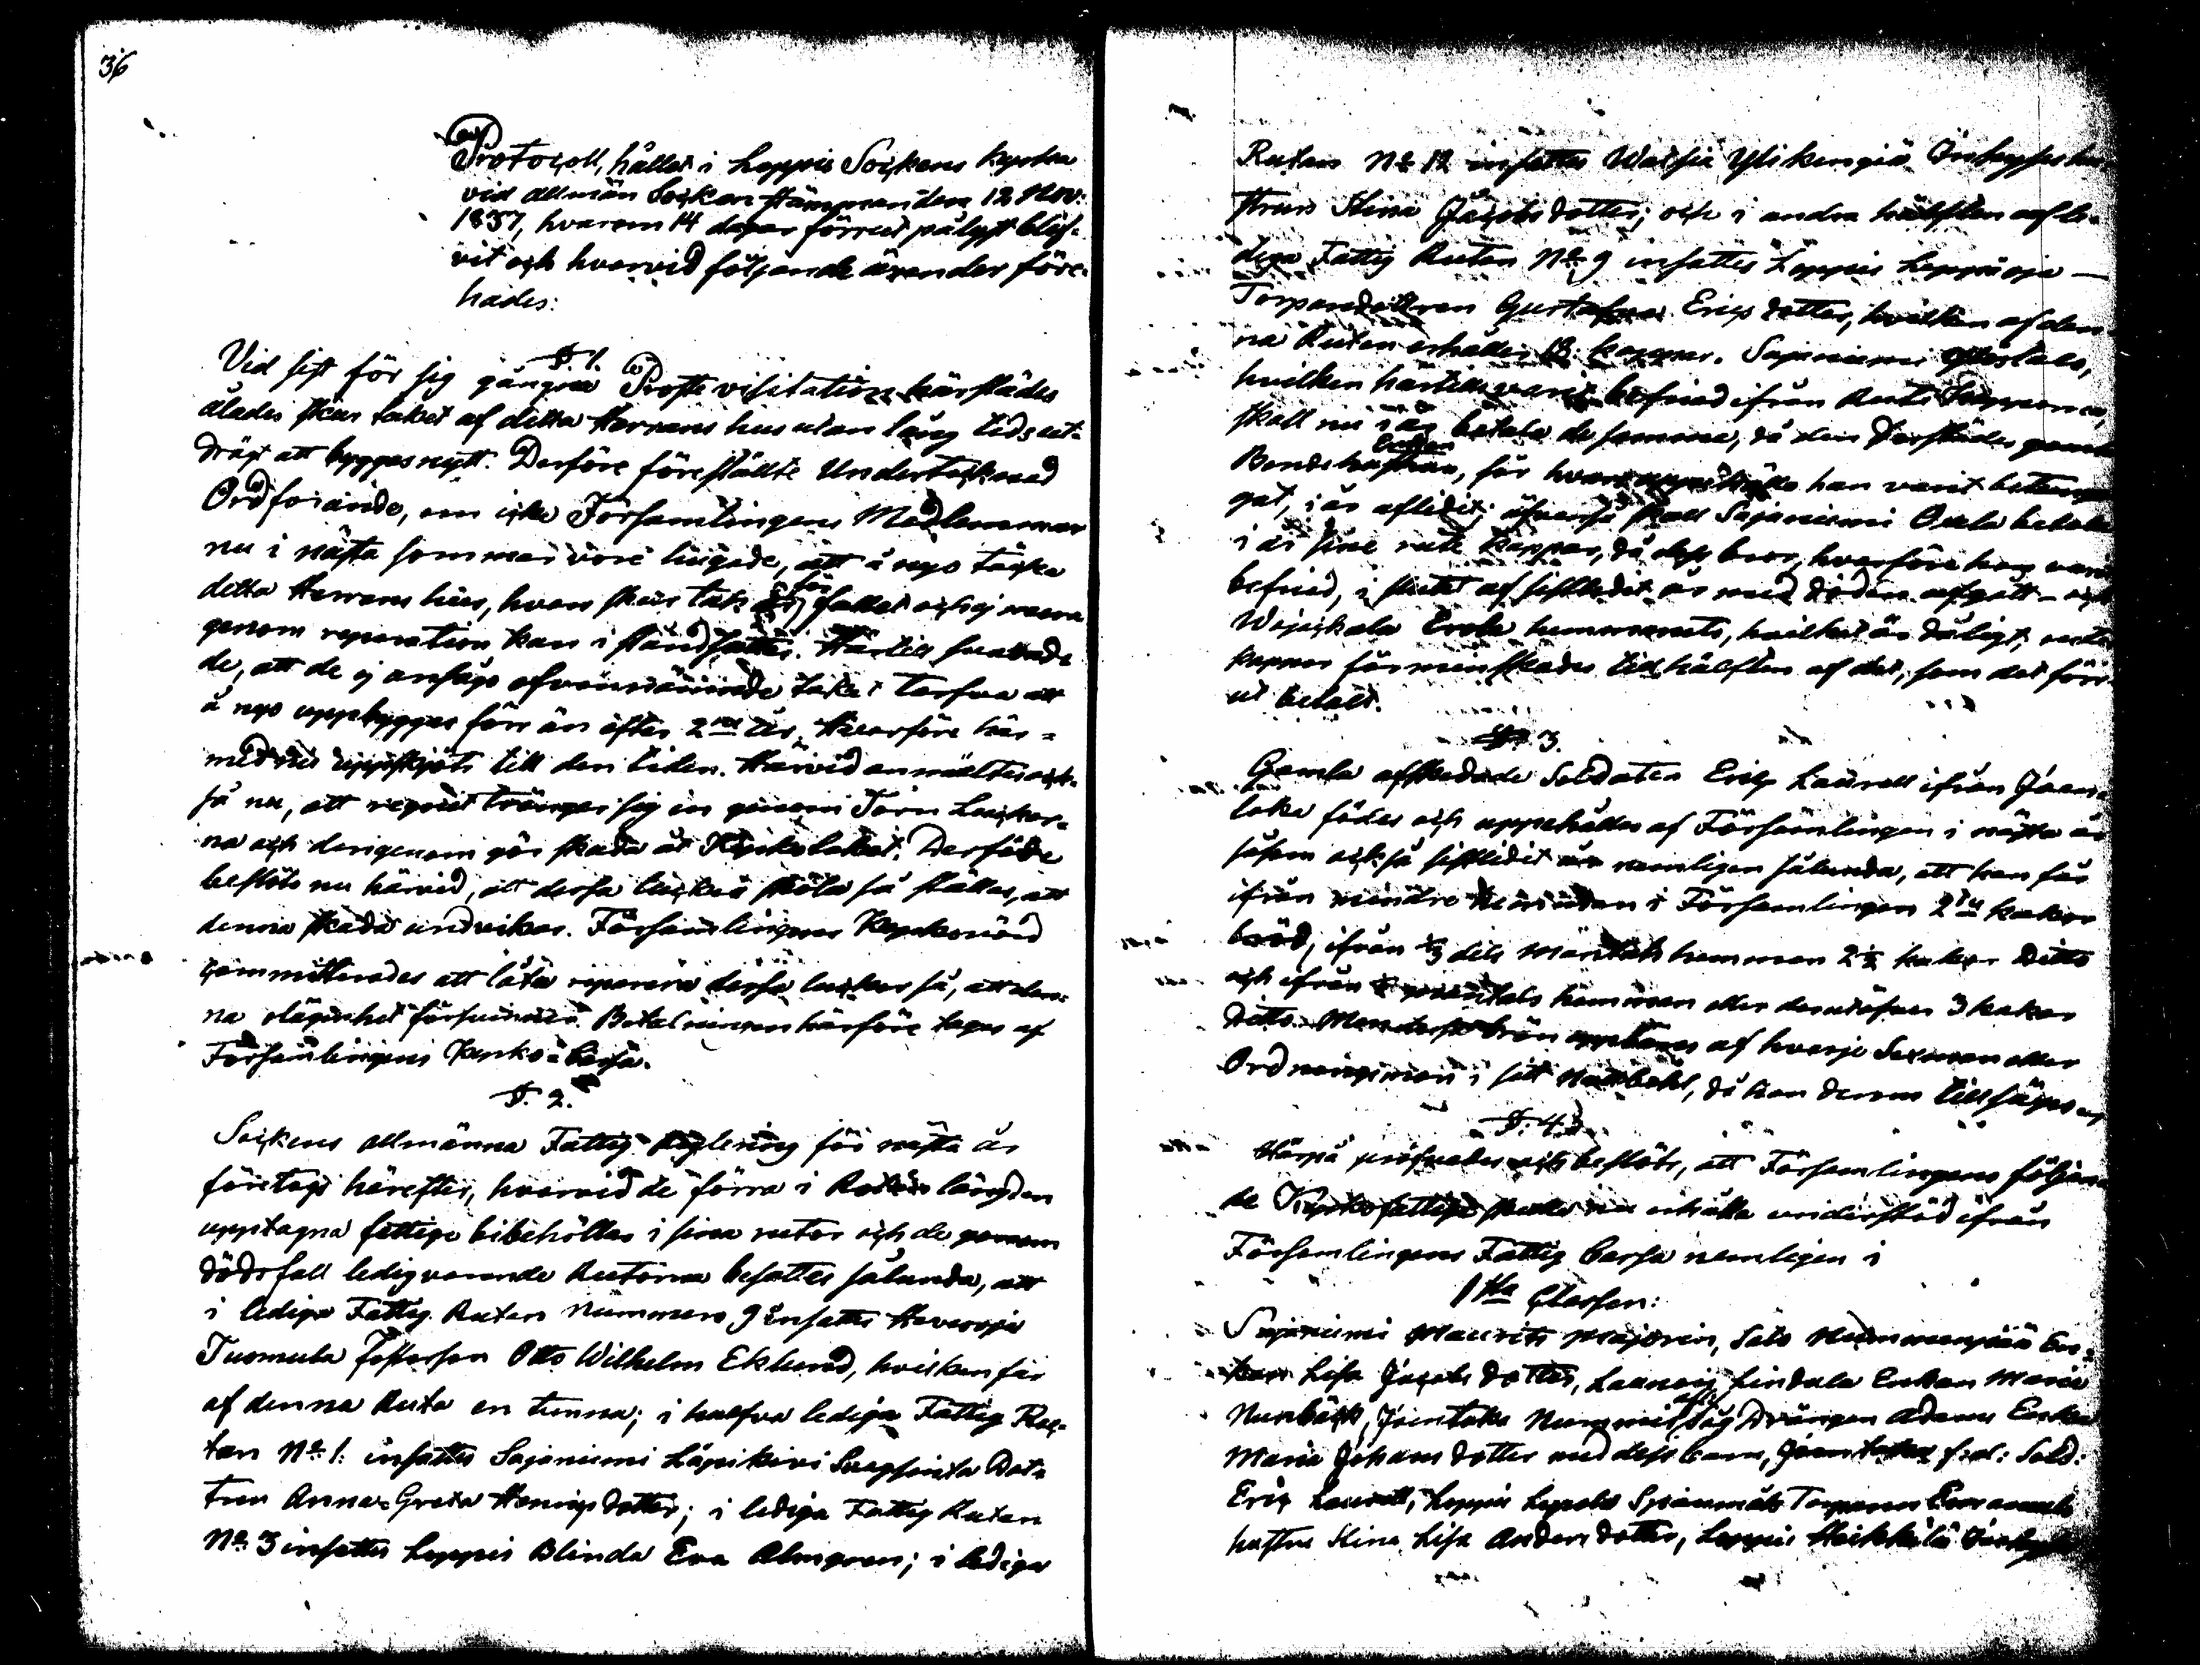 36
Protocoll, hållet i Loppis Sockens kyrka
vid allmän Sockenstämman den 12 Nov:
1837, hvarom 14 dagar förrut pålyst blif-
vit och hvarvid följande ärender före-
hades:
§. 1.
Vid sist för sig gångna Proste visitation härstädes
ålades skur taket af detta Herrans hus utan lång tids ut-
drägt att bygges nytt. Derföre föreställte Undertecknad
Ordförande, om icke Församlingens Medlemmar
nu i nästa sommar vore hugade, att å nyo täcka
detta Herrans hus, hvars skur tak är för fallet och ej mera
genom reparation kan i stånd sättes. Härtill svarade
de, att de ej ansågo ofvannämnde taket tarfva att
å nyo uppbyggas förr än efter 2ne år. Hvarföre här-
med nu uppskjöts till den tiden. Härvid anmältes ock-
så nu, att regnet tränger sig in genom Torn Luckor-
na och derigenom gör skada åt Kyrko taket. Derföre
beslöts nu härvid, att dessa luckor skola så ställas, att
denna skada undvikas. Församlingens Kyrkovärd
committerades att låta reparera dessa luckor så, att den-
na olägenhet försvinner. Betalningen härföre tages af
Församlingens Kyrko-Cassa.
§. 2.
Sockens allmänna Fattig Reglering för nästa år
företogs härefter, hvarvid de förra i Rote längden
upptagna fattige bibehölles i sina rutor och de genom
dödsfall ledigvarande Rutorna besattes sålunda, att
i lediga Fattig Rutan Nummer 9 insattes
Tuomula Otto Wilhelm Eklund, hvilken får
af denna Ruta en tunna; i halfva lediga Fattig Ru-
tan No 1. insattes Sajaniemi Läpikivi Dot-
tren Anna Greta Henricsdotter; i lediga Fattig Rutan
No 3 insattes Loppis Blinda Eva Almgren; i lediga
Rutan No 12 insattes Ylikengiä Inhyses hu-
strun Stina Jacobs dotter; och i andra hälften af le-
diga Fattig Rutan No 9 insattes Loppis Leppäoja
Torparedottren Gustafva Erics dotter, hvilken af den-
na Rutan erhåller 12 kappar. Sajaniemi
hvilken härtills varit befriad ifrån Rute Kapparna,
skall nu i år betala de samma, då den derstädes gamla
Bonde Enkan, för hvars uppehälle han varit
gat, i år aflidit; äfvenså skall Sajaniemi betala
i år sine rute kappar, då dess bror, hvarföre han varit
befriad, i slutet af sistledit år med döden afgått - och
Wojakala Erola hemmanets, hvilket är dåligt, rute
kappar förminskades till hälften af det, som det förr
ut betalt.
§. 3.
Gamla afskedade Soldaten Eric Laurell ifrån Joen-
taka födes och uppehålles af Församlingen i nästa år
såsom också sistledit år nemligen sålunda, att han får
ifrån mindre i Församlingen 2ne kakor
bröd, ifrån 1/3 dels Mantals hemman 2½ kakor Ditto
och ifrån mantals hemman eller derutöfver 3 kakor
Ditto. af hvarje Sexman eller
Ordningsman i sitt då han derom tillsäges
§. 4.
Härpå pröfvades och beslöts, att Församlingens följan-
de Kyrkofattige skulle nu erhålla understöd ifrån
Församlingens Fattig Cassa nemligen i
1sta Classen:
Sajaniemi Maurits Majorin, Salo Nummenpää En-
kan Lisa Jacobs dotter, Launoin Lindala Enkan Maria
Nurbäck, Joentaka Nummis Såg Drängen Adams Enka
Maria Johans dotter med dess barn, Joentaka f.d. Sold:
Eric Laurell, Loppis Torparen
hustru Stina Lisa Anders dotter, Loppis Heikkilä